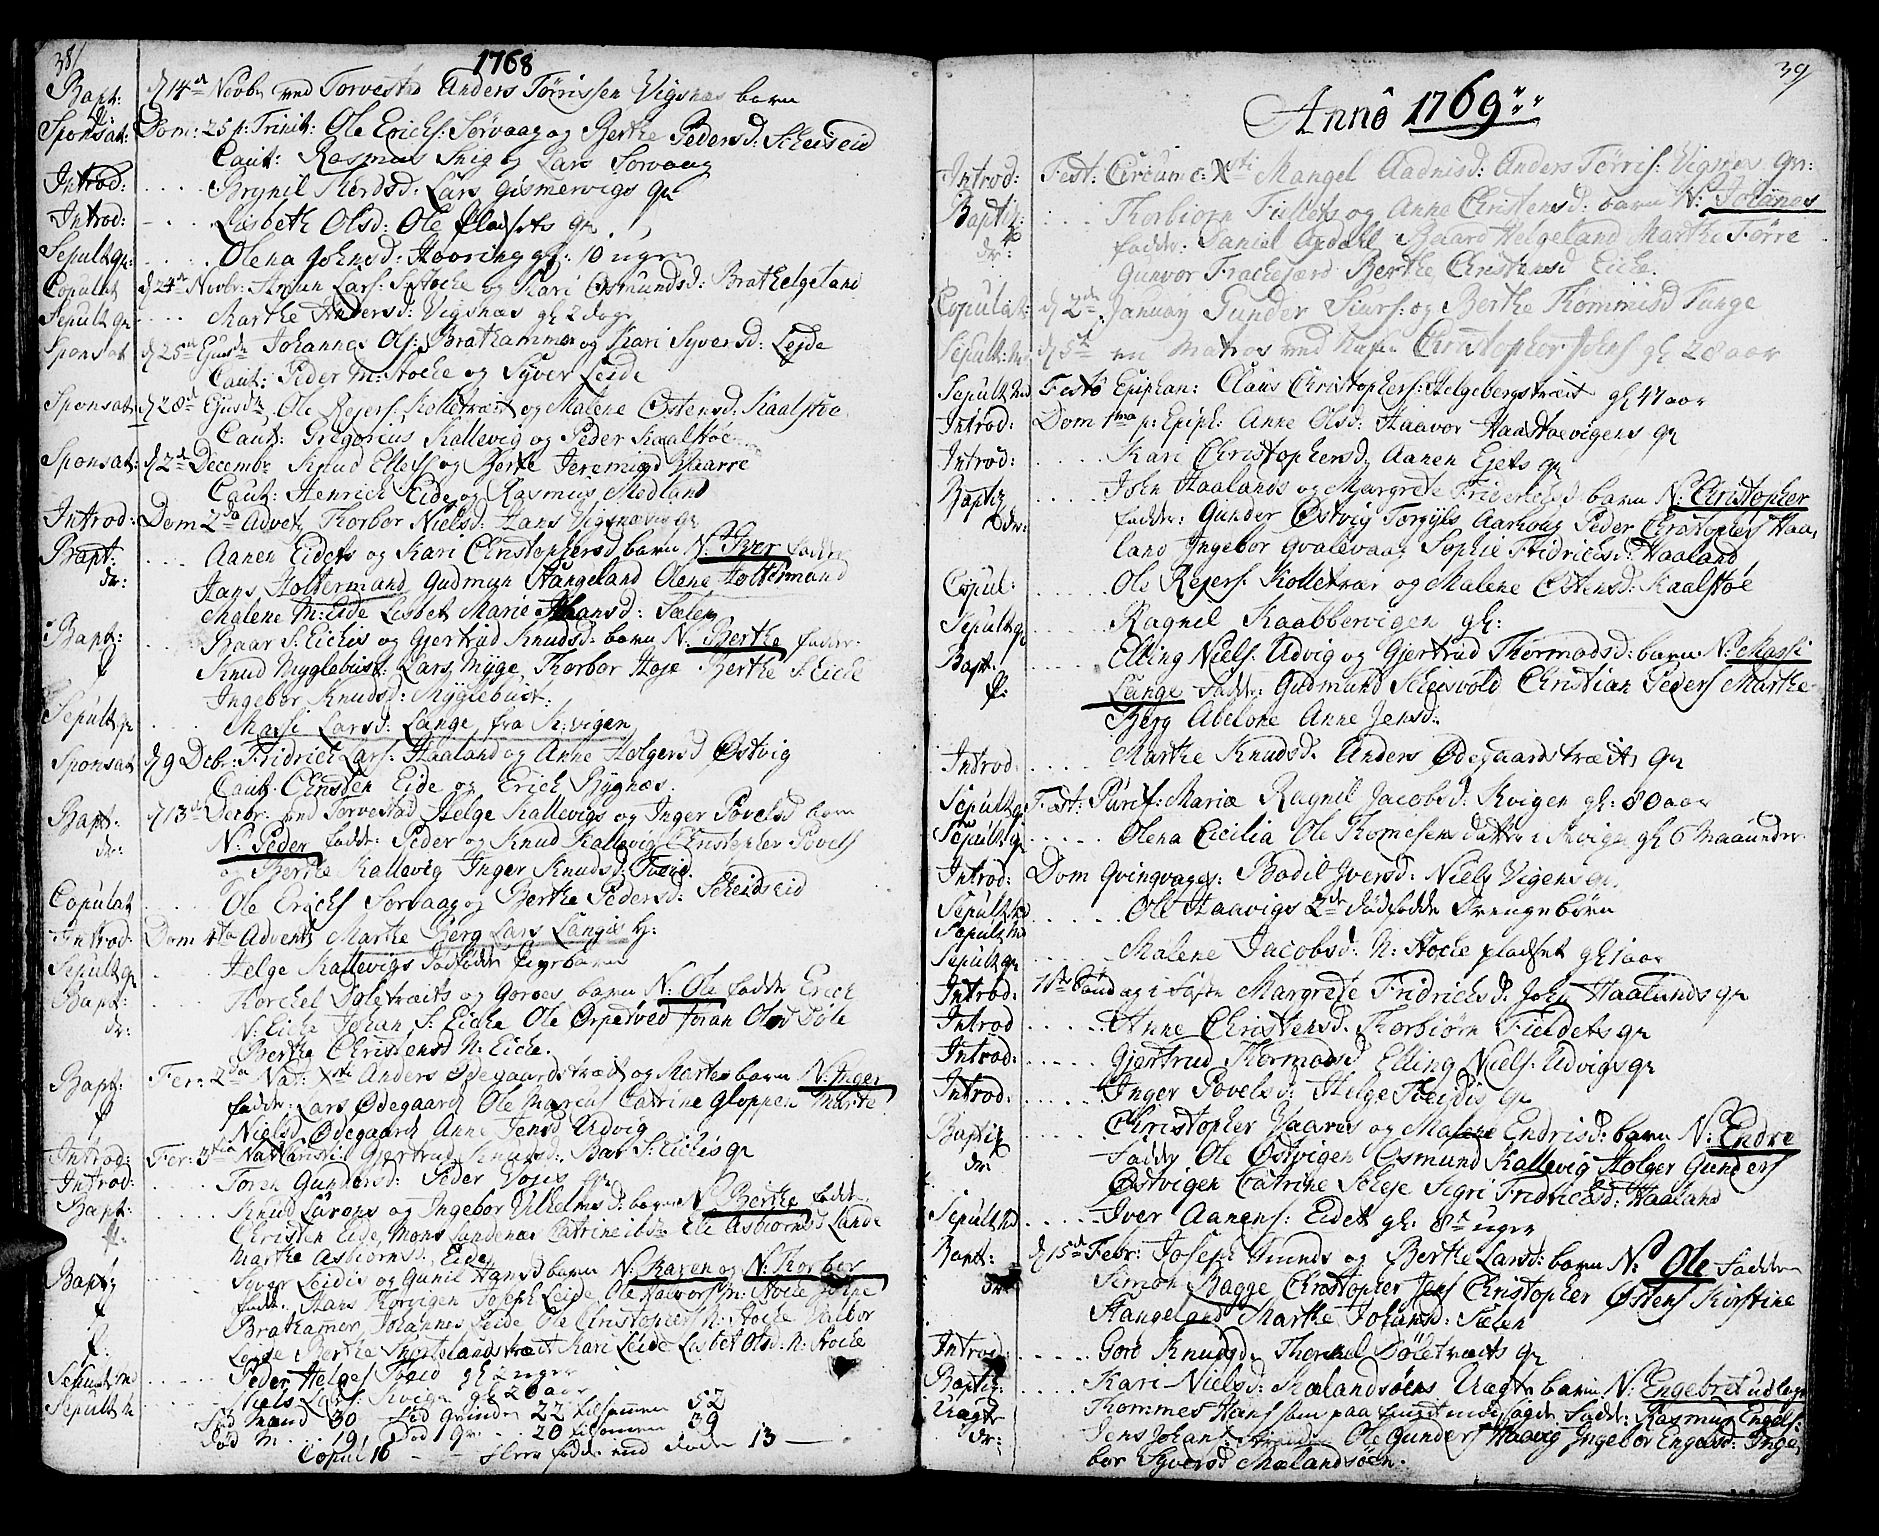 38/
1768
Bapt: d 14de Novbr ved Torvestad Anders Tørrissen Vigsnæs barn
dr:
Sponsat: Dom: 25 p: Trinit: Ole Erichs: Sørvaag og Berthe Peders d: Scheiseid
Caut: Rasmus og Lars Sørvaag
Introd: .... Brynil Lars Gismervigs qv
Introd: .... Lisbeth Olsd: Ole qv
Sepult qv: .... Olena Johnsd: Haaring gl: 10 uger
Copulat d 24de Novbr: Lars: S: Stocke og Kari Osmundsd: Brathelgeland
Sepult qv .... Marthe Andersd: Vigsnæs gl 2 dage
Sponsat d 25de Ejusd Johannes Ols: Brathammer og Kari Syversd: Leide
Caut: Peder N: Stocke og Syver Leide
Sponsat d 28de Ejusd Ole Rejers: Kolletræit og Malene Østensd: Kaalstøe
Caut: Gregorius Kallevig og Peder Kaalstøe
Sponsat: d 2de Decembr Knud Ellefs og Berte Jeremiasd Vaarre
Caut: Henrich Eide og Rasmus Medland
Introd: Dom 2da Advent Thorbor Nielsd: Hans Vigsnæs qv
Bapt: .... Aanen Eidets og Kari Christophersd barn N: Iver fadder
dr: Hans Holtermand Gudmun Stangeland Olene Holtermand
Malene N: Eide Lisbet Marie Hansd: Sælen
Bapt: .... Baar S: Eichis og Gjertrud Knudsd: barn N: Berthe fadder
p Knud Myglebust Lars Myge Thorbor Høje Berthe S: Eide
Ingebor Knudsd: Myglebust.
Sepult qv .... Massi Larsd: Lange fra K: vigen
Sponsat d 9 Debr: Fridrich Lars: Haaland og Anne Holgersd Østvig
Caut: Christen Eide og Erich Bygnæs.
Bapt: d 13de Decbr ved Torvestad Helge Kallevigs og Inger Povelsd barn
dr: N: Peder fadde: Peder og Knud Kallevig Christopher Povels
og Berthe Kallevig Inger Knudsd: Tveid.
Copulat .... Ole Erichs Sørvaag og Berthe Pedersd: Scheidseid
Introd: Dom 4ta Advent Marthe Berg Lars Langis H:
Sepult qv . Helge Kallevigs Dødfødde Pigebarn
Bapt: . Thorchel Døletræits og Goroes barn N: Ole fadder Erich
dr: N: Eiche Johan S: Eiche Ole Ørpetved Joran Olsd Døle
Berthe Christensd N: Eiche.
Bapt: Fer: 2da Nat: Xsti Anders Ødegaardstræt og Martes barn N: Inger
p fadde: Lars Ødegaard Ole Marcus Catrine Gloppen Marte
Nielsd Ødegaard Anne Jensd Udvig
Introd: Fer: 3tia Natlansteil Gjertrud Knudsd: Bar S: Eichis qv
Introd: .... Toren Gundersd: Peder qv
Bapt: .... Knud Larens og Ingebor Vilhelmsd: barn N Berthe fadde
p: Christen Eide, Mons Sundenæs Catrine Ole Asbiornsd Lande
Marthe Asbiornsd: Eide
Bapt . Syver Leidis og Gunil Hansd barn N: Karen og N: Thorber
p fadde. Hans Thorvigen Joseph Leide Ole Halvors N: Stocke
p: Brathammer, Johannes Leide Ole Christophers N: Stocke Valbor
Leide Berthe Kari Leide Lisbet Olsd: N: Stocke
Sepult m .... Peder Helges Tveid gl 2 uger
Sepult m .... Niels Lars: Kvigen gl 26 aar
Fød Mænd 30 Fød Qvinder 22 tilsammen 52
Død M .... 19, Død Qv: .. 20 tilsammen 39
Copul 16 - - flere fødde end døde 13 —
39/
Anno 1769
Introd: Fest: Circumc: Xsti Mangel Aadnisd: Anders Tørris: Vigsnes qv:
Baptiz .... Thorbiorn Fieltets og Anne Christensd: barn N: Johannes
dr: fadde: Daniel Aardahl Baard Helgeland Marthe Førre
Gunvor Frackefærd Berthe Christensd Eiche.
Copulat: d 2de January Gunder Siurs: og Berthe Thommisd Tunge
Sepult: m d 5te en Matros ved Christopher Jens gl 28 aar
Sepult m Festo Epiphan: Claus Christophers: Helgebergstræit gl 47 aar
Introd: Dom 1ma p: Epiph: Anne Olsd: Haavor Haastoevigens qv
Introd: .... Kari Christophersd: Aanen Ejets qv
Baptiz .... John Haalands og Margrete Friderichsd barn N: Christopher
dr: fadder: Gunder Østvig Torgyls Aarhoug Peder Christophers Haa,
land Ingebor Qvalevaag Sophie Fridrichsd: Haaland
Copul: .... Ole Rejers: Kolletvæt og Malene Østensd: Kaalstøe
Sepult qv .... Ragnil Kaabbervigen gl:
Bapt. .... Elling Niels: Udvig og Gjertrud Thormodsd: barn N: Massi
p: Lange fadde: Gudmund Scheisvold Christian Peders Marthe
Berg Abelone Anne Jensd:
Introd. .... Marthe Knudsd: Anders Ødegaardstræits qv
Sepult qv Fest: Purif: Mariæ Ragnil Jacobsd: Kvigen gl: 80 aar
Sepult qv .... Olena Cicilia Ole Thomesens datter i Kvigen gl 6 Maaneder
Introd: Dom Qvinqvages: Bodil Iversd: Niels Vigens qv.
Sepult m .... Ole Haavigs 2de dødfødde Drengebørn
Sepult m
Sepult qv .... Malene Jacobsd: N: Stocke pladset gl 1 aar
Introd: 1ste Søndag i faste Margrete Fridrichsd: John Haalands qv
Introd .... Anne Christensd: Thorbiørn Fieldets qv
Introd: .... Gjertrud Thormodsd Elling Niels: Udvigs qv
Introd: .... Inger Povelsd: Helge Tveidis qv
Baptiz .... Christopher Vaares og Malene Endrisd: barn N: Endre
dr fadder Ole Østvigen Osmund Kallevig Holger Gunders
Østvigen Catrine Scheje Sigri Fridrichsd: Haaland
Sepult m .... Iver Aanens: Eidet gl: 8te uger
Bapt: d 15de Febr: Joseph Hunds og Berthe Larsd: barn N: Ole fadder
dr: Simon Bagge Christopher Jens Christopher Østens Kirstine
Stangeland Marthe Johansd: Sælen
Introd: .... Goro Knudsd: Thorchel Døletræits qv
Baptiz. .... Kari Nielsd: Mælandsøens Uægte barn N: Engebret udlagt
Uægte Thommes Hans som paa fadde: Rasmus Engels:
dr: Jens Johans: Ole Gunders Haavig Ingebor Engelsd: Inge,
bor Syversd Mælandsøen.